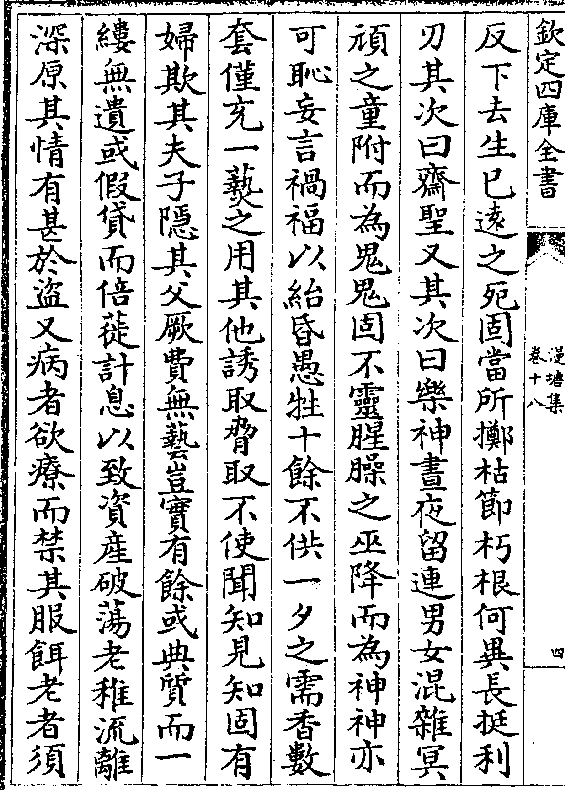 欽定四庫全書
漫塘集
卷十八
四
反下去生已遠之死固當所擲枯節朽根何異長挺利
刃其次曰齋聖又其次曰樂神晝夜留連男女混雜冥
頑之童附而為鬼鬼固不靈腥臊之巫降而為神神亦
可恥妄言禍福以紿昏愚牲十餘不供一夕之需香數
套僅充一爇之用其他誘取脅取不使聞知見知固有
婦欺其夫子隱其父厥費無藝豈實有餘或典質而一
縷無遺或假貸而倍蓰計息以致資產破蕩老稚流離
深原其情有甚於盜又病者欲療而禁其服餌老者須